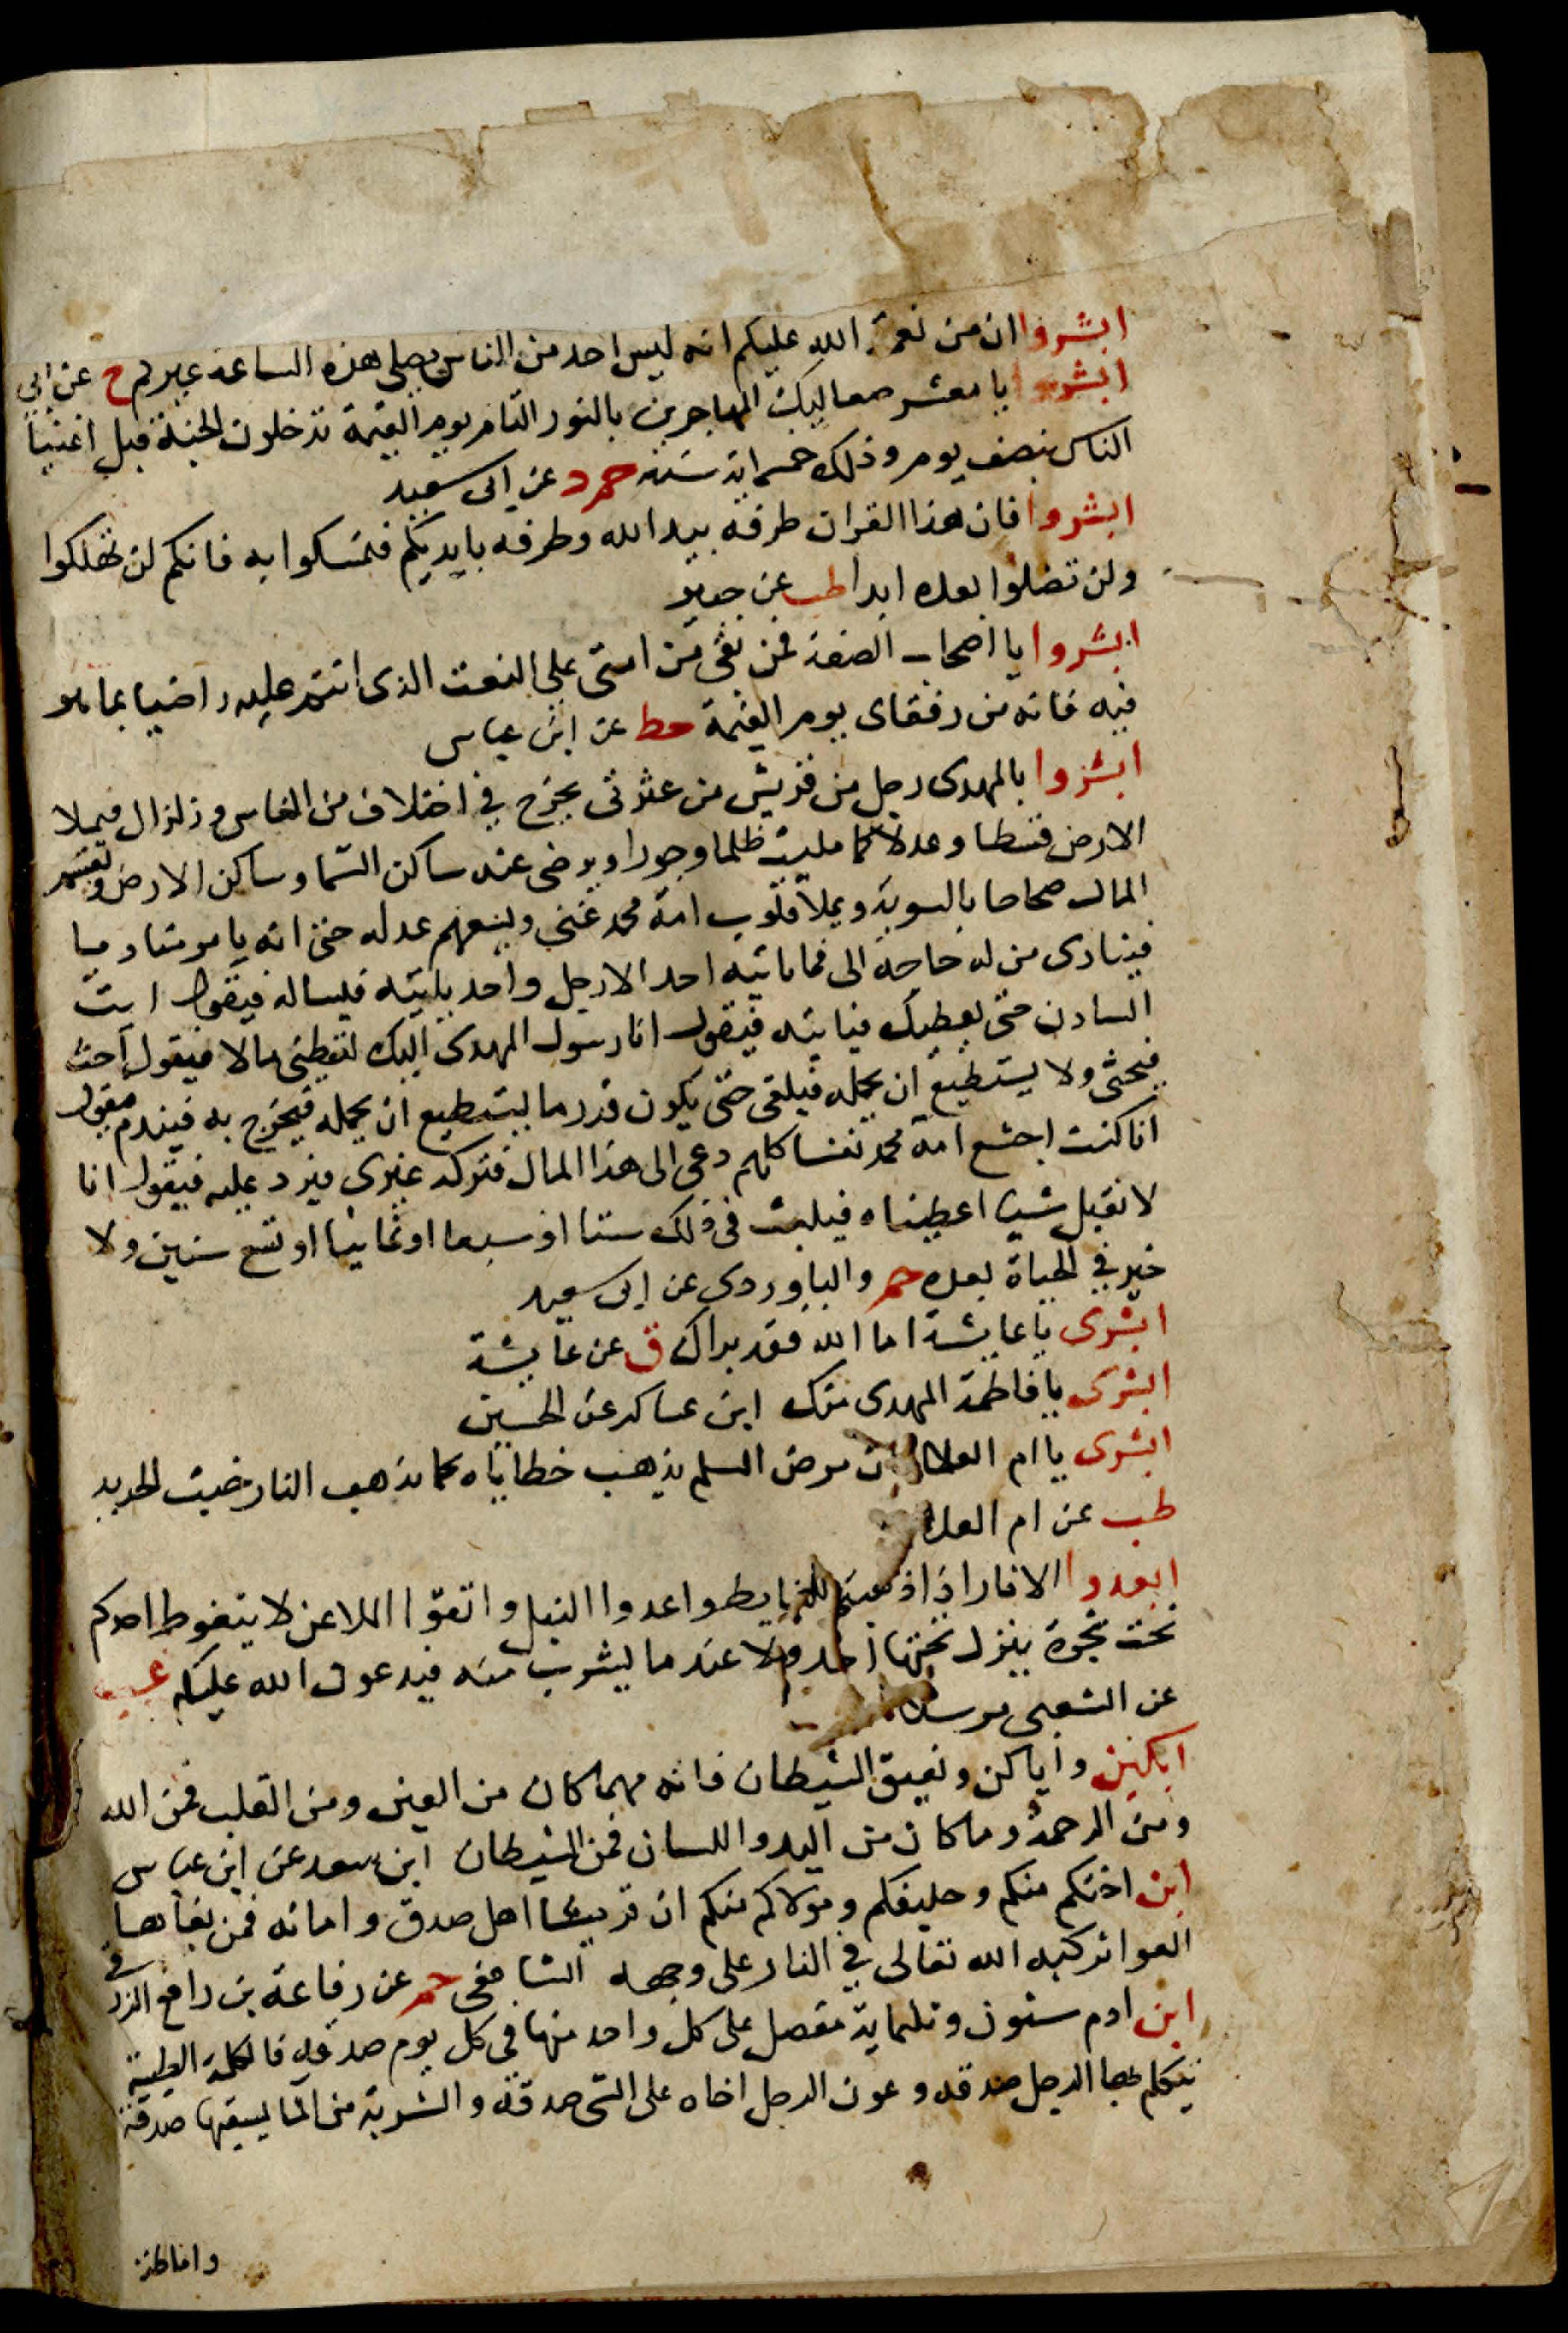 ابشروا ان من نعمة الله عليكم انه ليس احد من الناس يصلي هذه الساعة غيركم خ عن ابي
ابشروا يا معشر صعاليك المهاجرين بالنور التام يوم القيمة تدخلون الجنة قبل اغنيا
الناس بنصف يوم وذلك خمسماية سنه حم د عن ابي سعيد
ابشروا فان هذا القران طرفه بيد الله وطرفه بايديكم فتمسكوا به فانكم لن تهلكوا
ولن تضلوا بعده ابدا طب عن جبير
ابشروا يا اصحاب الصفة فمن بقى من امتى على النعت الذى انتم عليه راضيا بما هو
فيه فانه من رفقاى يوم القيمة خط عن ابن عباس
ابشروا بالمهدى رجل من قريش من عترتى يخرج في اختلاف من الناس وزلزال فيملا
الارض قسطا وعدلا كما مليت ظلما وجورا ويرضى عنه ساكن السما وساكن الارض ويقسم
المال صحاحا بالسوية ويملا قلوب امة محمد غنى ويسعهم عدله حتى انه يامر مناديا
فينادى من له حاجة الى فما ياتيه احد الا رجل واحد ياتيه فيساله فيقول ايت
السادن حتى يعطيك فياتيه فيقول انا رسول المهدى اليك لتعطينى مالا فيقول احث
فيحثى ولا يستطيع ان يحمله فيلقى حتى يكون قدر ما يستطيع ان يحمله فيخرج به فيندم فيقول
انا كنت اجشع امة محمد نفسا كلهم دعى الى هذا المال فتركه غيرى فيرد عليه فيقول انا
لا نقبل شيا اعطيناه فيلبث فى ذلك ستا او سبعا او ثمانيا او تسع سنين ولا
خير في الحياة بعده حم والباوردى عن ابى سعيد
ابشرى يا عايشة اما الله فقد براك ق عن عايشة
ابشرى يا فاطمة المهدى منك ابن عساكر عن الحسين
ابشرى يا ام العلا فان مرض المسلم يذهب خطاياه كما تذهب النار خبث الحديد
طب عن ام العلا
ابعدوا الاثار اذا ذهبتم للغايط واعدوا النبل واتقوا الملاعن لا يتغوط احدكم
تحت شجرة ينزل تحتها احد ولا عند ما يشرب منه فيدعون الله عليكم عب
عن الشعبى مرسلا
ابكين واياكن ونعيق الشيطان فانه مهما كان من العين ومن القلب فمن الله
ومن الرحمة وما كان من اليد واللسان فمن الشيطان ابن سعد عن ابن عباس
ابن اختكم منكم وحليفكم ومولاكم منكم ان قريشا اهل صدق وامانه فمن بغاها
العواثر كبه الله تعالى في النار على وجهه الشافعى حم عن رفاعة بن رافع الزرقي
ابن ادم ستون وثلثماية مفصل على كل واحد منها في كل يوم صدقة فالكلمة الطيبة
يتكلم بها الرجل صدقه وعون الرجل اخاه على الشى صدقه والشربة من الما يسقيها صدقة
واماطة